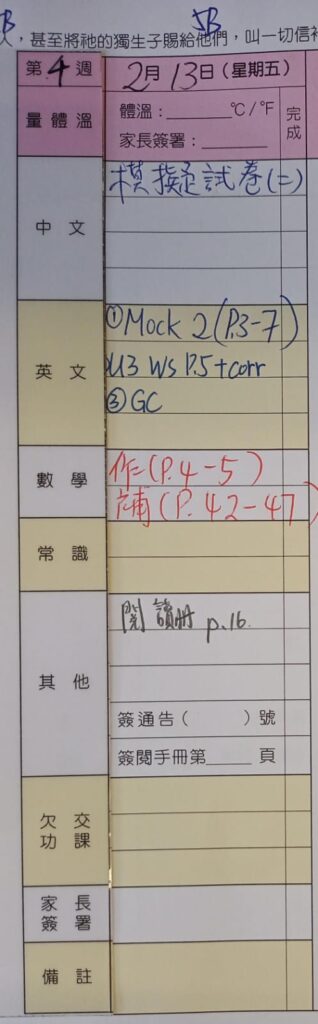 5B
，甚至將祂的獨生子賜給他們，叫一切信
第4週 2月13日(星期五)
量體溫 體溫：______ ℃/℉ 完成
家長簽署：______
中文 模擬試卷(二)
英文 ①Mock 2 (P.3-7)
U3 WS P.5+corr
③GC
數學 作(P.4-5)
補(P.42-47)
常識
其他 閱讀冊 p.16.
簽通告( )號
簽閱手冊第_____頁
欠交功課
家長簽署
備註